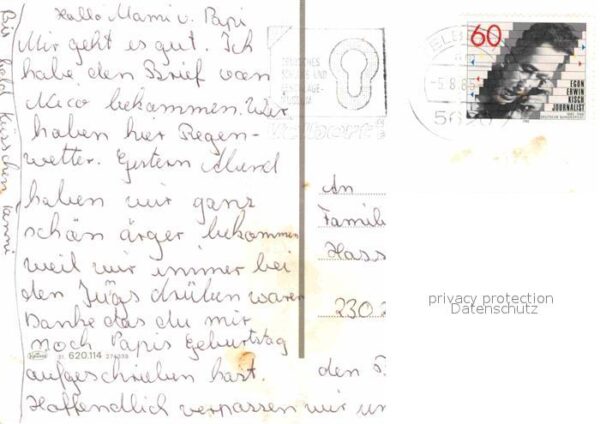 Hallo Mami u. Papi
Mir geht es gut. Ich
habe den Brief von
Nico bekommen. Wir
haben hier Regen-
wetter. Gestern Abend
haben wir ganz
schön ärger bekommen
weil wir immer bei
den Jügs drüben waren
Danke das du mir
noch Papis Geburtstag
aufgeschrieben hast.
Hoffendlich verpassen wir un
Bis bald
620.114
DEUTSCHES
SCHLOSS UND
BESCHLÄGE-
MUSEUM
-5.8.85
60
EGON
ERWIN
KISCH
JOURNALIST
DEUTSCHE BUNDESPOST
An
Famili
Hass
230
den
privacy protection
Datenschutz